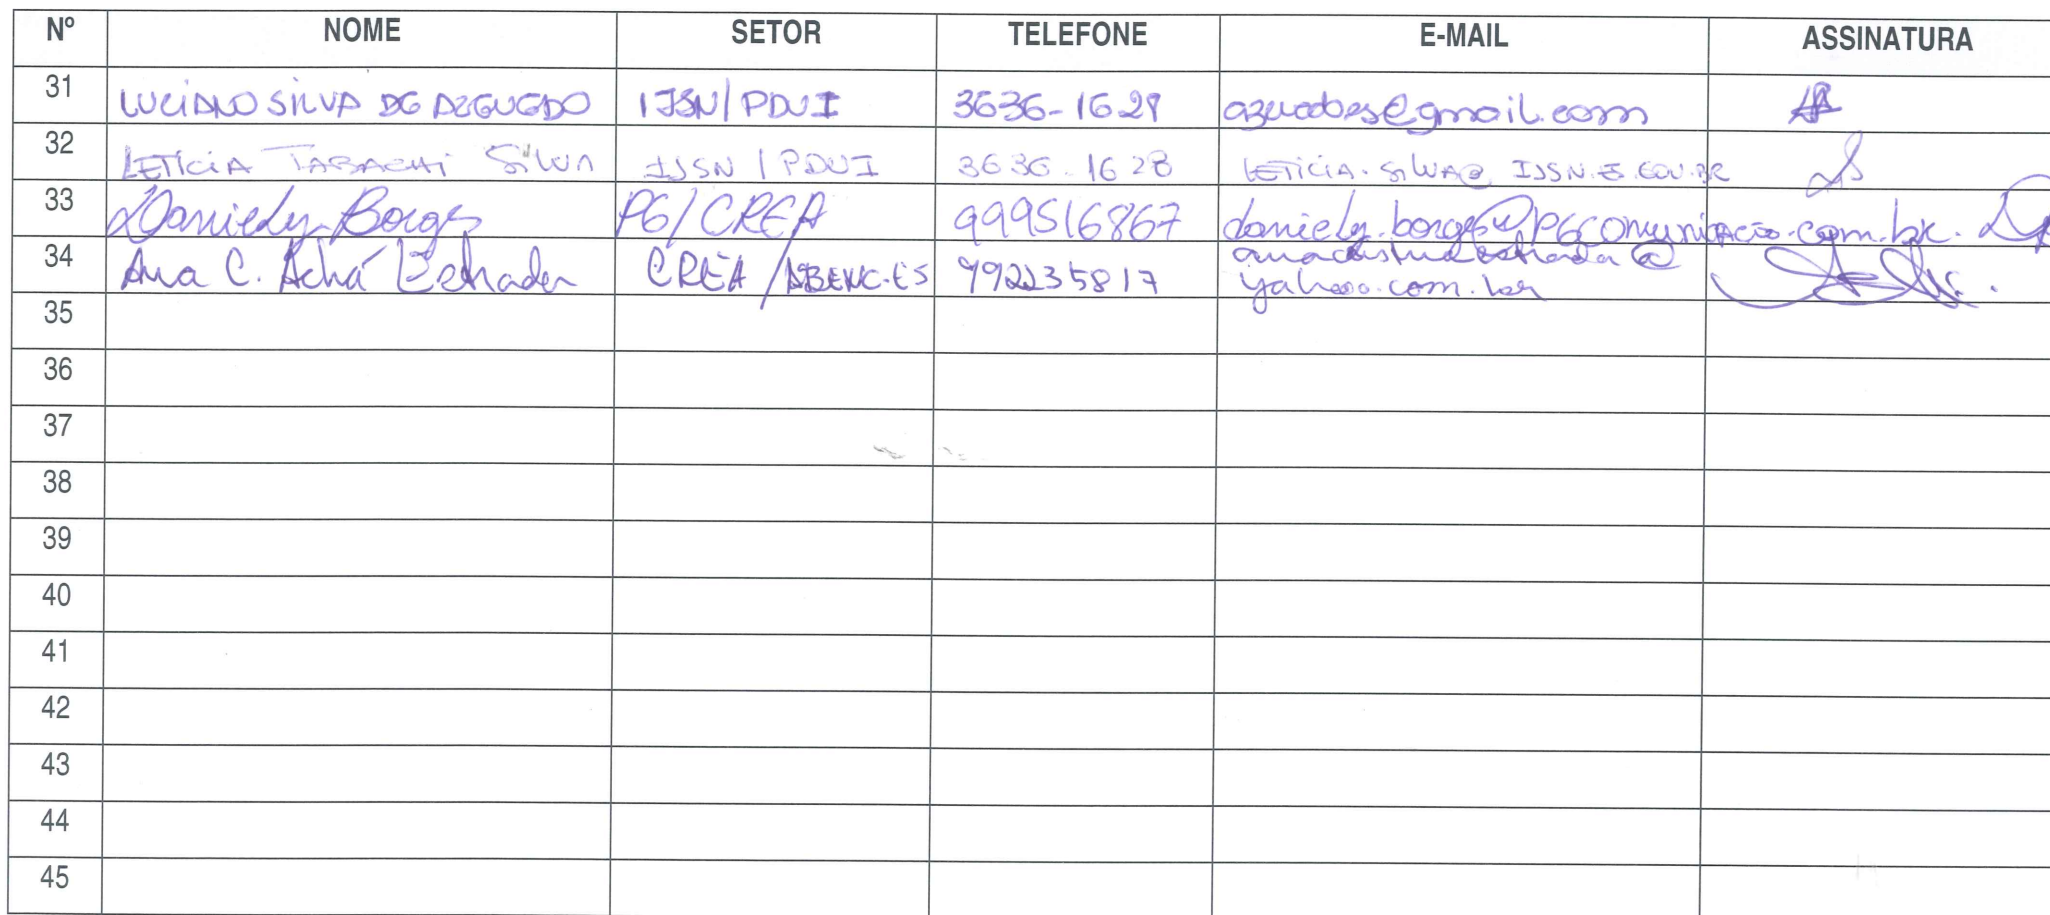 Nº NOME SETOR TELEFONE E-MAIL ASSINATURA
31 LUCIANO SILVA DE AZEVEDO IJSN/PDUI 3636-1628 @gmail.com
32 LETÍCIA TABACHI SILVA IJSN/PDUI 3636.1628 LETICIA.SILVA@IJSN.ES.GOV.BR
33 Daniely Borges P6/CREA 999516867 daniely.borges@p6comunicacao.com.br.
34 Ana C. Achá Estrada CREA/ABENC-ES 992235817 anacristinaestrada@
yahoo.com.br
35
36
37
38
39
40
41
42
43
44
45